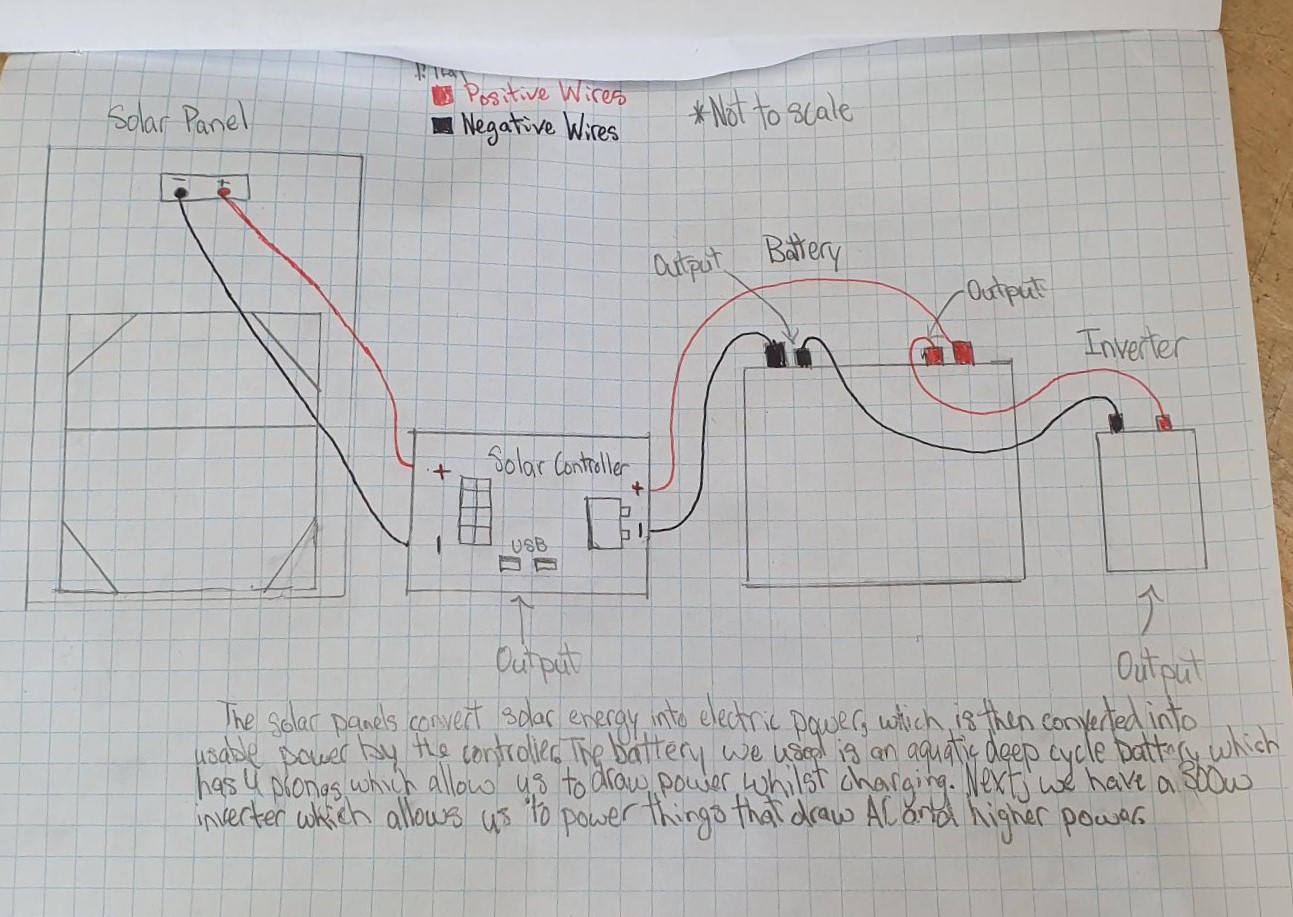 Positive Wires
Solar Panel
*Not to scale
Negative Wires
- +
Output
Battery
Output
Inverter
+ Solar Controller
+
-
USB
-
Output
Output
The solar panels convert solar energy into electric power, which is then converted into
usable power by the controller. The battery we used is an aquatic deep cycle battery, which
has 4 prongs which allow us to draw power whilst charging. Next, we have a 300w
inverter which allows us to power things that draw AC and higher power.